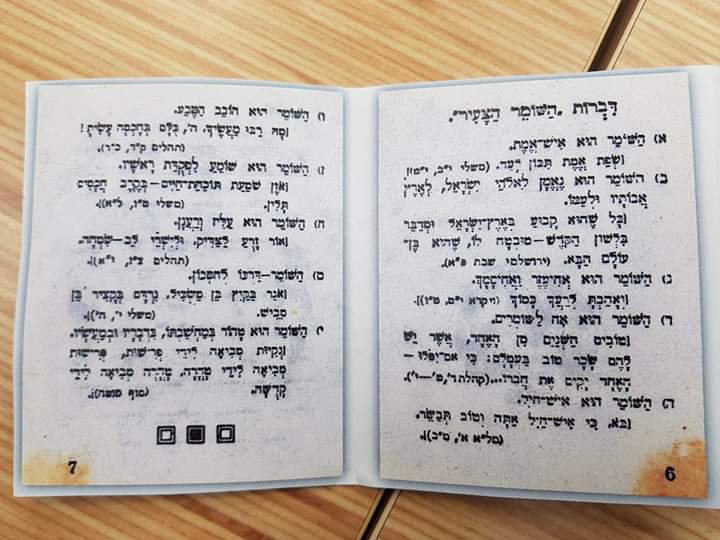 דִּבְרוֹת „הַשּׁוֹמֵר הַצָּעִיר".
א) הַשּׁוֹמֵר הוּא אִישׁ־אֱמֶת.
[שְׂפַת אֱמֶת תִּכּוֹן לָעַד. (משלי י"ב, י"ט)].
ב) הַשּׁוֹמֵר הוּא נֶאֱמָן לֵאלֹהֵי יִשְׂרָאֵל, לְאֶרֶץ
אֲבוֹתָיו וּלְעַמּוֹ.
[כָּל שֶׁהוּא קָבוּעַ בְּאֶרֶץ־יִשְׂרָאֵל וּמְדַבֵּר
בִּלְשׁוֹן הַקֹּדֶשׁ—מוּבְטָח לוֹ, שֶׁהוּא בֶּן־
עוֹלָם הַבָּא. (ירושלמי שבת פ"א)].
ג) הַשּׁוֹמֵר הוּא אֲחִיעֶזֶר וַאֲחִיסָמָךְ.
[וְאָהַבְתָּ לְרֵעֲךָ כָּמוֹךָ (ויקרא י"ט,
ד) הַשּׁוֹמֵר הוּא אָח לַשּׁוֹמְרִים.
[טוֹבִים הַשְּׁנַיִם מִן הָאֶחָד, אֲשֶׁר יֵשׁ
לָהֶם שָׂכָר טוֹב בַּעֲמָלָם: כִּי אִם־יִפֹּלוּ—
הָאֶחָד יָקִים אֶת חֲבֵרוֹ...(קהלת ד',ט'—י').
ה) הַשּׁוֹמֵר הוּא אִישׁ־חַיִל.
[בֹּא, כִּי אִישׁ־חַיִל אַתָּה וְטוֹב תְּבַשֵּׂר.
(מל"א א', מ"ב)].
6
ו) הַשּׁוֹמֵר הוּא חוֹבֵב הַטֶּבַע.
[מָה רַבּוּ מַעֲשֶׂיךָ, ה', כֻּלָּם בְּחָכְמָה עָשִׂיתָ!
(תהלים ק"ד, כ"ד)].
ז) הַשּׁוֹמֵר הוּא שׁוֹמֵעַ לִפְקֻדַּת רָאשָׁיו.
[אֹזֶן שֹׁמַעַת תּוֹכַחַת־חַיִּים—בְּקֶרֶב חֲכָמִים
תָּלִין. (משלי ט"ו, ל"א)].
ח) הַשּׁוֹמֵר הוּא עַלִּיז וְרַעֲנָן.
[אוֹר זָרֻעַ לַצַּדִּיק, וּלְיִשְׁרֵי לֵב—שִׂמְחָה.
(תהלים צ"ז, י"א)].
ט) הַשּׁוֹמֵר—דַּרְכּוֹ לַחִסָּכוֹן.
[אֹגֵר בַּקַּיִץ בֵּן מַשְׂכִּיל, נִרְדָּם בַּקָּצִיר בֵּן
מֵבִישׁ. (משלי י', ה')].
י) הַשּׁוֹמֵר הוּא טָהוֹר בְּמַחֲשַׁבְתּוֹ, בִּדְבָרָיו וּבְמַעֲשָׂיו.
[נְקִיּוּת מְבִיאָה לִידֵי פְּרִישׁוּת, פְּרִישׁוּת
מְבִיאָה לִידֵי טָהֳרָה, טָהֳרָה מְבִיאָה לִידֵי
קְדֻשָּׁה. (סוף סוטה)].
7